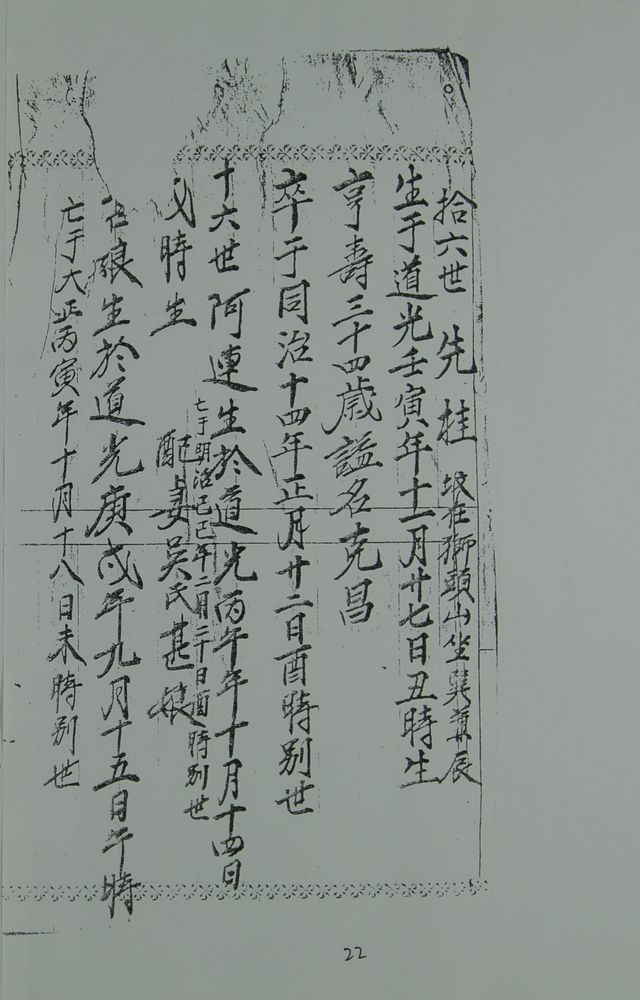 拾六世 先桂 坟在獅頭山坐巽兼辰
生于道光壬寅年十一月廿七日丑時生
亨壽三十四歲謚名克昌
卒于同治十四年正月廿二日酉時別世
十六世 阿連生於道光丙午年十月十四日
亡于明治己巳年二月二十日酉時別世
時生 配妻吳氏甚娘
娘生於道光庚戌年九月十五日午時
亡于大正丙寅年十月十八日未時別世
22